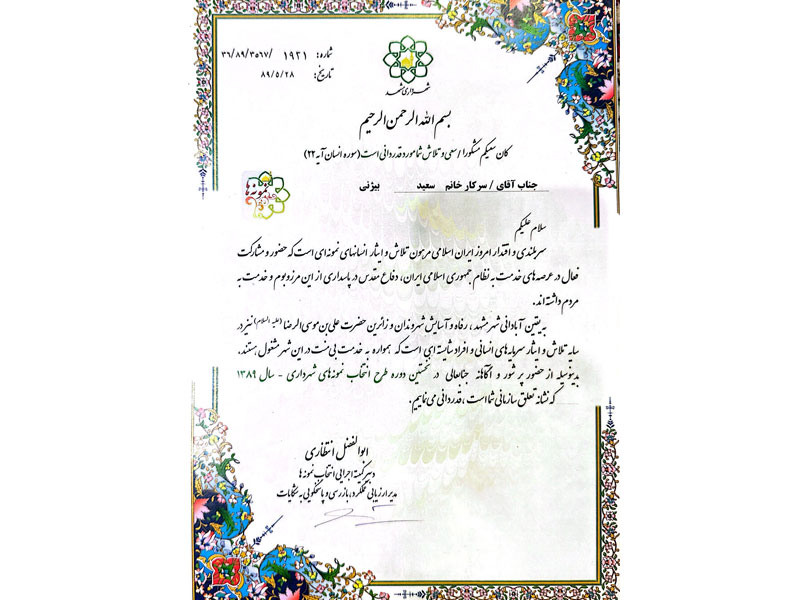 شماره: ۳۶/۸۹/۳۵۶۷/ ۱۹۲۱
تاریخ: ۸۹/۵/۲۸
شهرداری مشهد
بسم الله الرحمن الرحیم
کان سعیکم مشکورا / سعی و تلاش شما مورد قدردانی است (سوره انسان آیه ۲۲)
جناب آقای / سرکار خانم سعید بیژنی
نمونه‌ها
سلام علیکم
سربلندی و اقتدار امروز ایران اسلامی مرهون تلاش و ایثار انسانهای نمونه‌ای است که حضور و مشارکت
فعال در عرصه‌های خدمت به نظام جمهوری اسلامی ایران، دفاع مقدس در پاسداری از این مرز و بوم و خدمت به
مردم داشته‌اند.
به یقین آبادانی شهر مشهد، رفاه و آسایش شهروندان و زائرین حضرت علی بن موسی الرضا (علیه السلام) نیز در
سایه تلاش و ایثار سرمایه‌های انسانی و افراد شایسته ای است که همواره به خدمت بی منت در این شهر مشغول هستند.
بدینوسیله از حضور پر شور و آگاهانه جنابعالی در نخستین دوره طرح انتخاب نمونه‌های شهرداری - سال ۱۳۸۹
که نشانه تعلق سازمانی شما است، قدردانی می نماییم.
ابوالفضل انتظاری
دبیر کمیته اجرایی انتخاب نمونه ها
مدیر ارزیابی عملکرد، بازرسی و پاسخگویی به شکایات